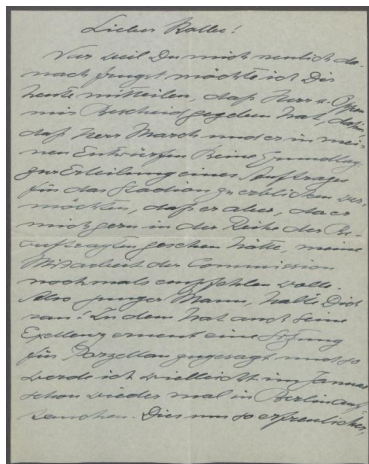 Lieber Kolbe!
Nur weil Du mich neulich da-
nach fragst möchte ich Dir
heute mitteilen, daß Herr v. Oppen
mir Bescheid gegeben hat, dahin,
daß Herr March und er in mei-
nen Entwürfen keine Grundlage
zur Erteilung eines Auftrages
für das Stadion zu erblicken ver-
möchten, daß er aber, da er
mich gern in der Reihe der Be-
auftragten gesehen hätte, meine
Mitarbeit der Commission
nochmals empfehlen wolle.
Also junger Mann, halte Dich
ran! Zudem hat auch Seine
Exellenz erneut eine Sitzung
für Porzellan zugesagt und so
werde ich vielleicht im Januar
schon wieder mal in Berlin auf-
tauchen. Dies um so erfreulicher,